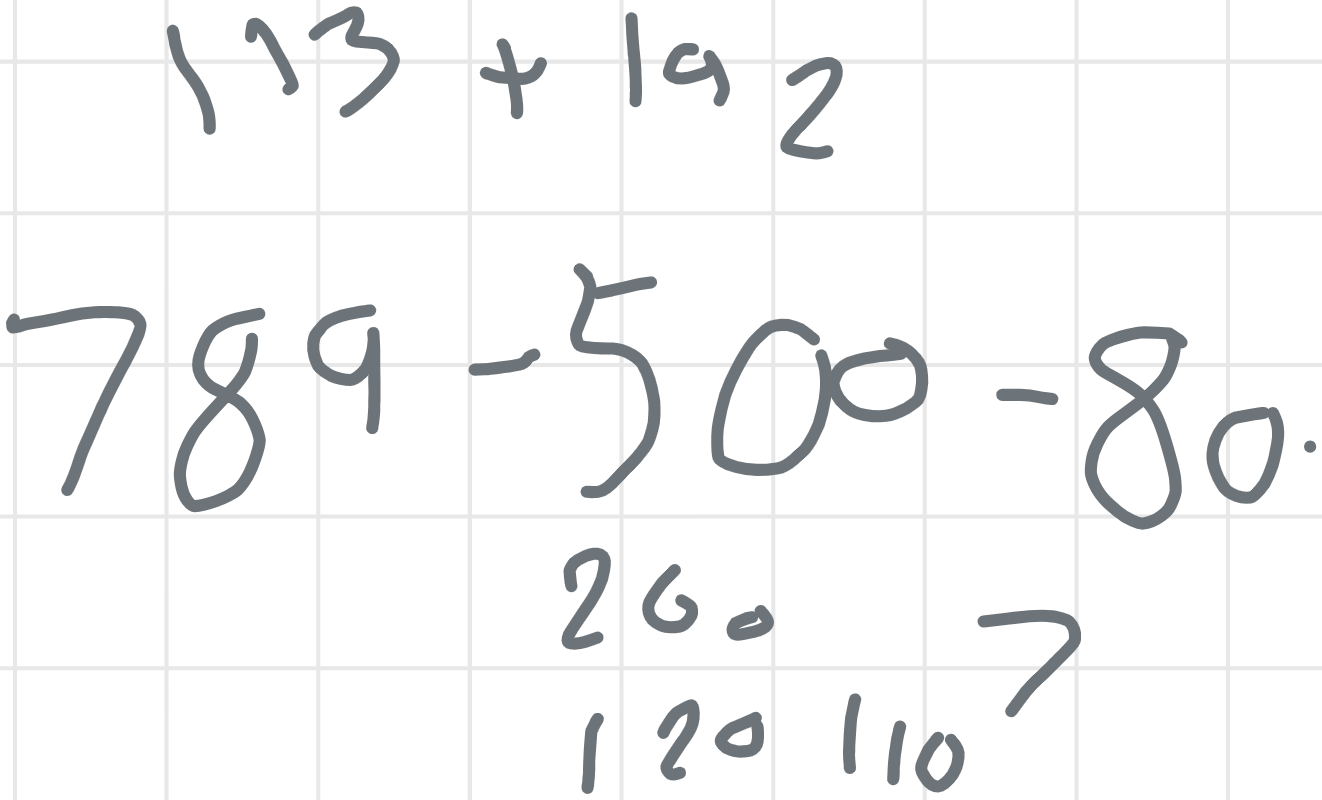 113 + 192
789 - 500 - 80.
200
7
120 110